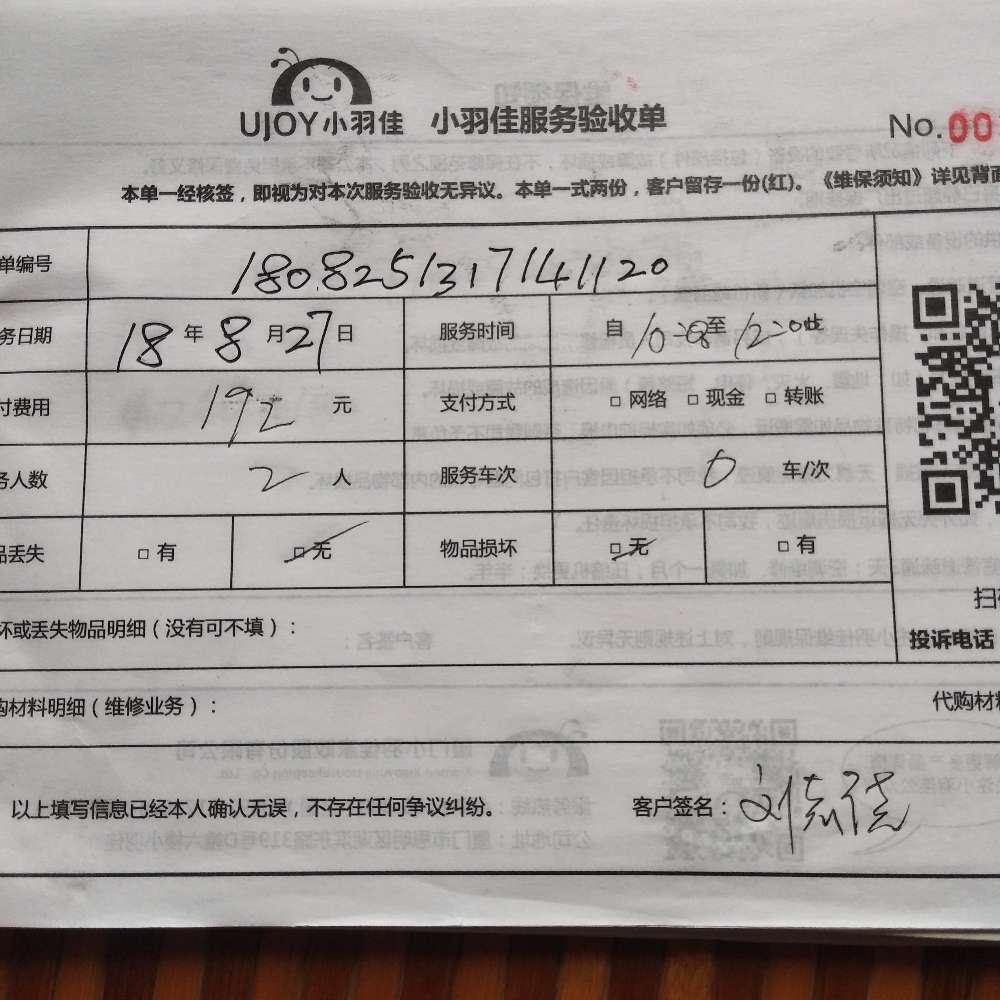 UJOY小羽佳 小羽佳服务验收单
No.00
本单一经核签，即视为对本次服务验收无异议。本单一式两份，客户留存一份(红)。《维保须知》详见背面
单编号 1808251317141120
务日期 18 年 8 月 27 日 服务时间 自 10:00 至 12:00
付费用 192 元 支付方式 □ 网络 □ 现金 □ 转账
务人数 2 人 服务车次 0 车/次
品丢失 □ 有 □ 无 物品损坏 □ 无 □ 有
坏或丢失物品明细（没有可不填）：
扫
投诉电话
购材料明细（维修业务）： 代购材料
以上填写信息已经本人确认无误，不存在任何争议纠纷。 客户签名：刘